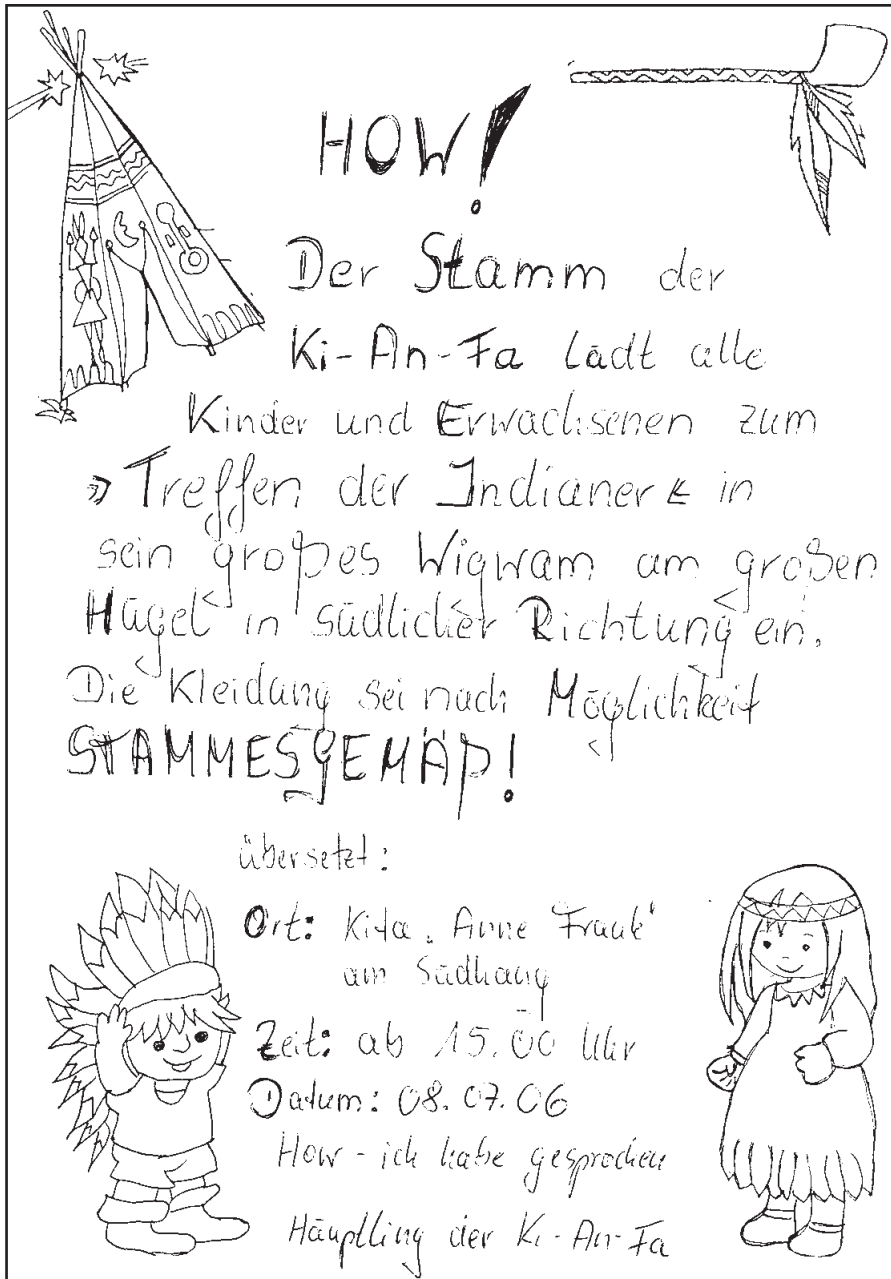 HOW!
Der Stamm der
Ki-An-Fa lädt alle
Kinder und Erwachsenen zum
» Treffen der Indianer « in
sein großes Wigwam am großen
Hügel in südlicher Richtung ein.
Die Kleidung sei nach Möglichkeit
STAMMESGEMÄß!
übersetzt:
Ort: Kita „Anne Frank"
am Südhang
Zeit: ab 15.00 Uhr
Datum: 08.07.06
How - ich habe gesprochen
Häuptling der Ki-An-Fa